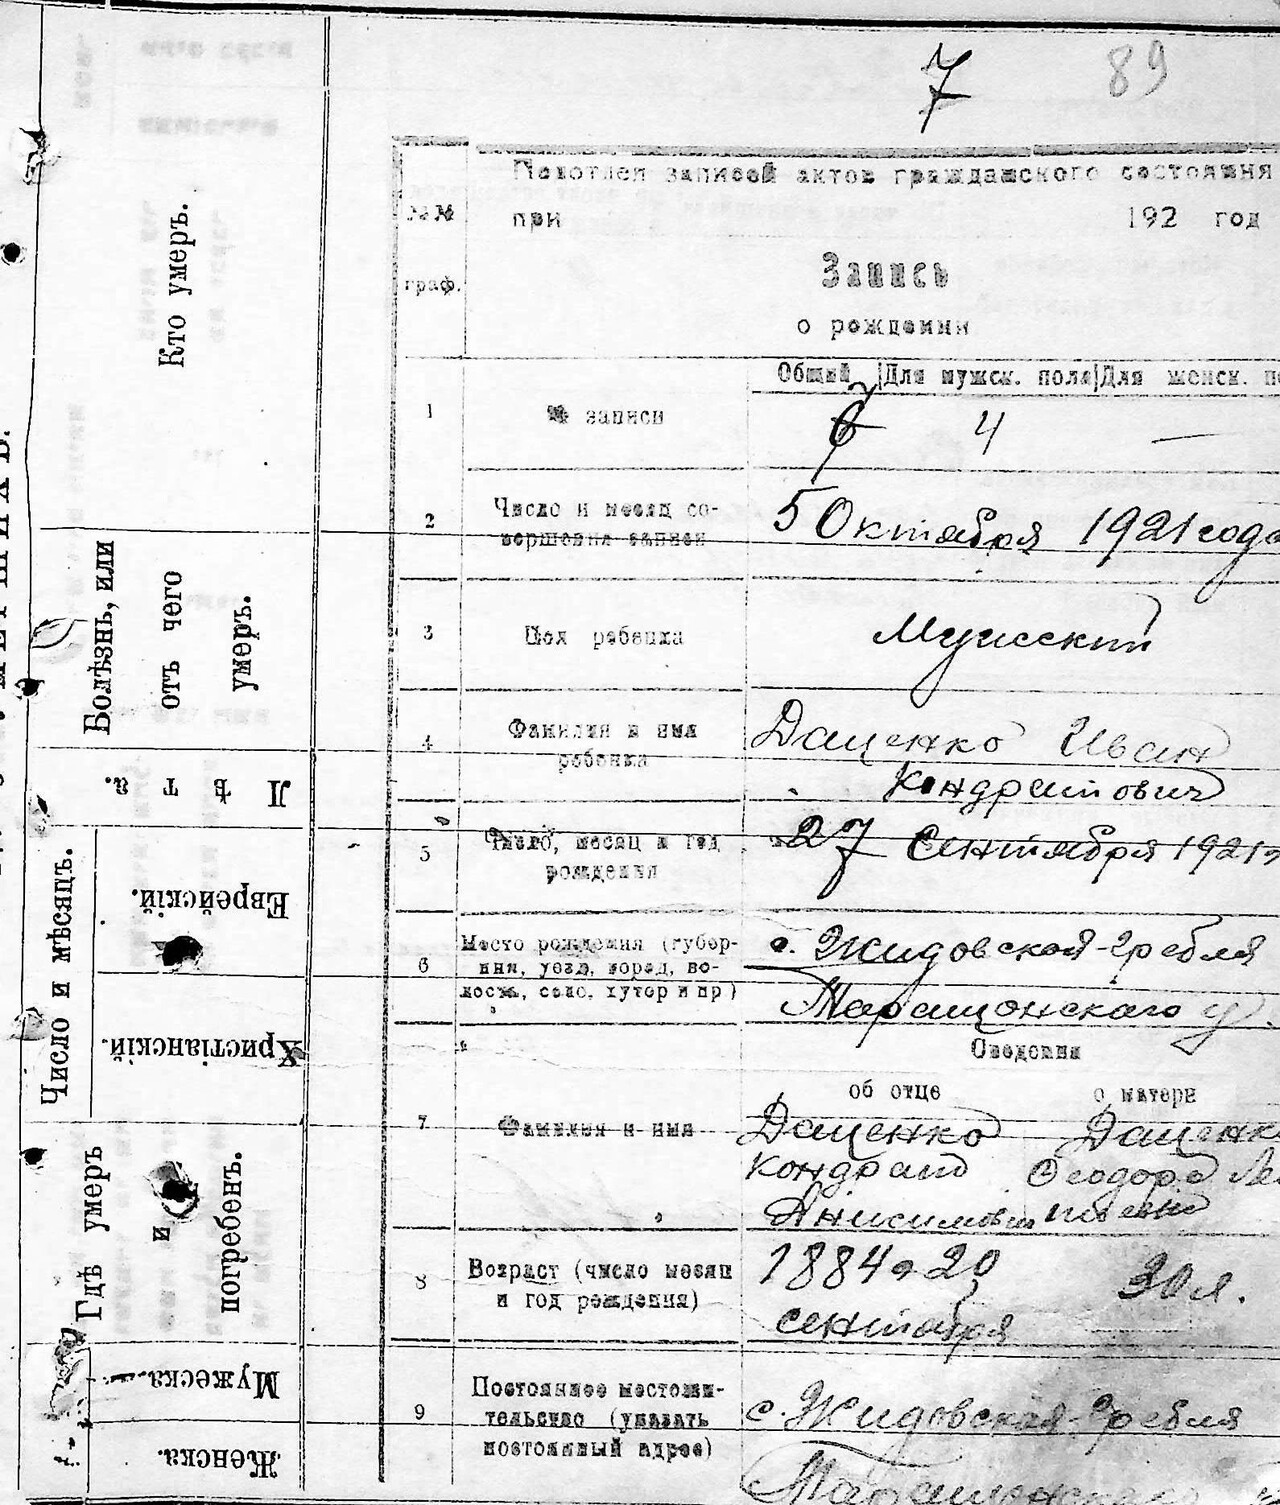 7 89
Подотдел записей актов гражданского состояния
№№ при 192 год
граф. Запись
о рождении
Общий Для мужск. пола Для женск.
1 № записи 4 —
2 Число и месяц со-
вершения записи
5 Октября 1921 года
3 Пол ребенка Мужской
4 Фамилия и имя
ребенка
Даценко Иван
Кондратович
5 Число, месяц и год
рождения
27 Сентября 1921
6 Место рождения (губер-
ния, уезд, город, во-
лость, село, хутор и пр)
с. Жидовская-Гребля
Таращанскаго у.
Сведения
об отце о матери
7 Фамилия и имя
Даценко
Кондрат
Анисимович
Даценк
Феодора
8 Возраст (число месяц
и год рождения)
1884 20
сентября
30 л.
9 Постоянное местожи-
тельство (указать
постоянный адрес)
с. Жидовская-Гребля
Кто умеръ.
Болѣзнь, или
отъ чего
умеръ.
Лѣта.
Число и мѣсяцъ.
Еврейскій.
Христіанскій.
Гдѣ умеръ
и
погребенъ.
Мужеска.
Женска.